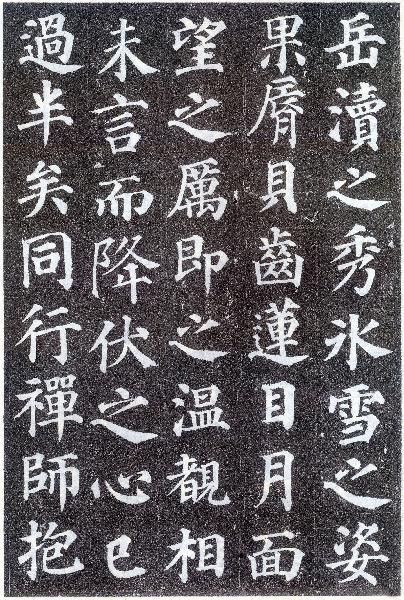 岳瀆之秀氷雪之姿
果脣貝齒蓮目月面
望之厲即之温觀相
未言而降伏之心已
過半矣同行禪師抱